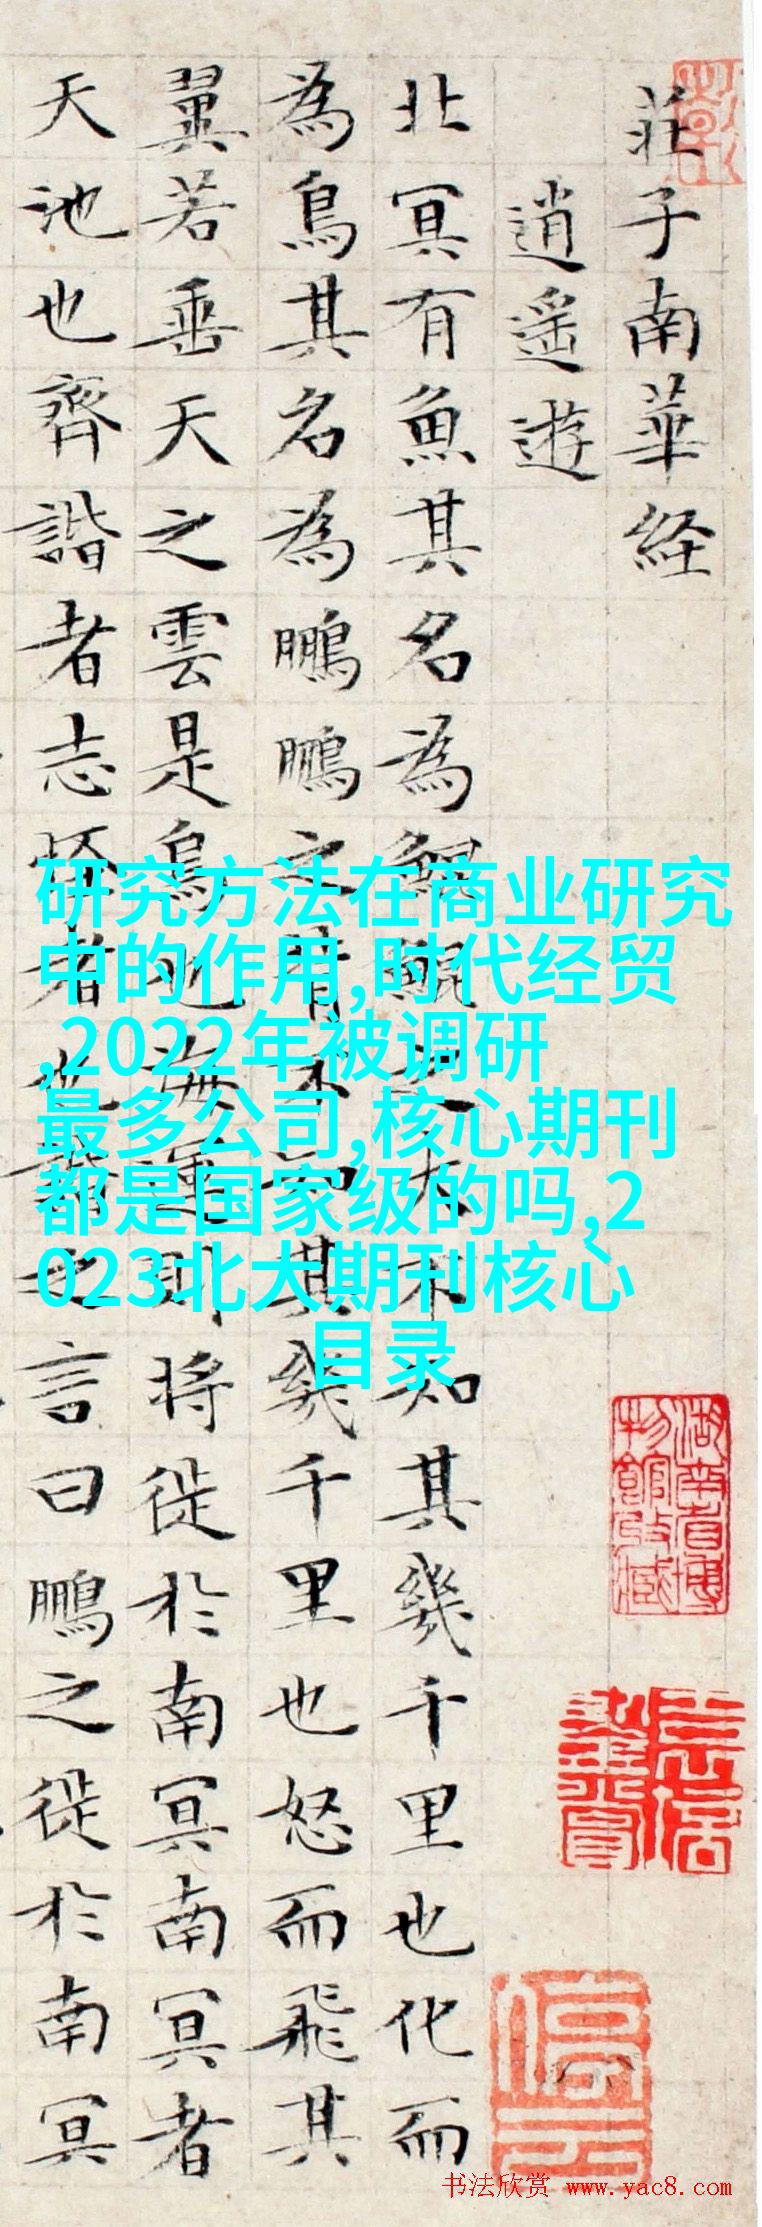 莊子南華経
逍遥遊
北冥有魚其名為鯤鯤之大不知其幾千里也化而
為鳥其名為鵬鵬之背不知其幾千里也怒而飛其
翼若垂天之雲是鳥也海運則将徙於南冥南冥者
天池也齊諧者志怪者也諧之言曰鵬之徙於南冥
研究方法在商业研究
中的作用,时代经贸
,2022年被调研
最多公司,核心期刊
都是国家级的吗,2
023北大期刊核心
目录
湖南省博
物館收藏
停云
书法欣赏 www.yac8.com